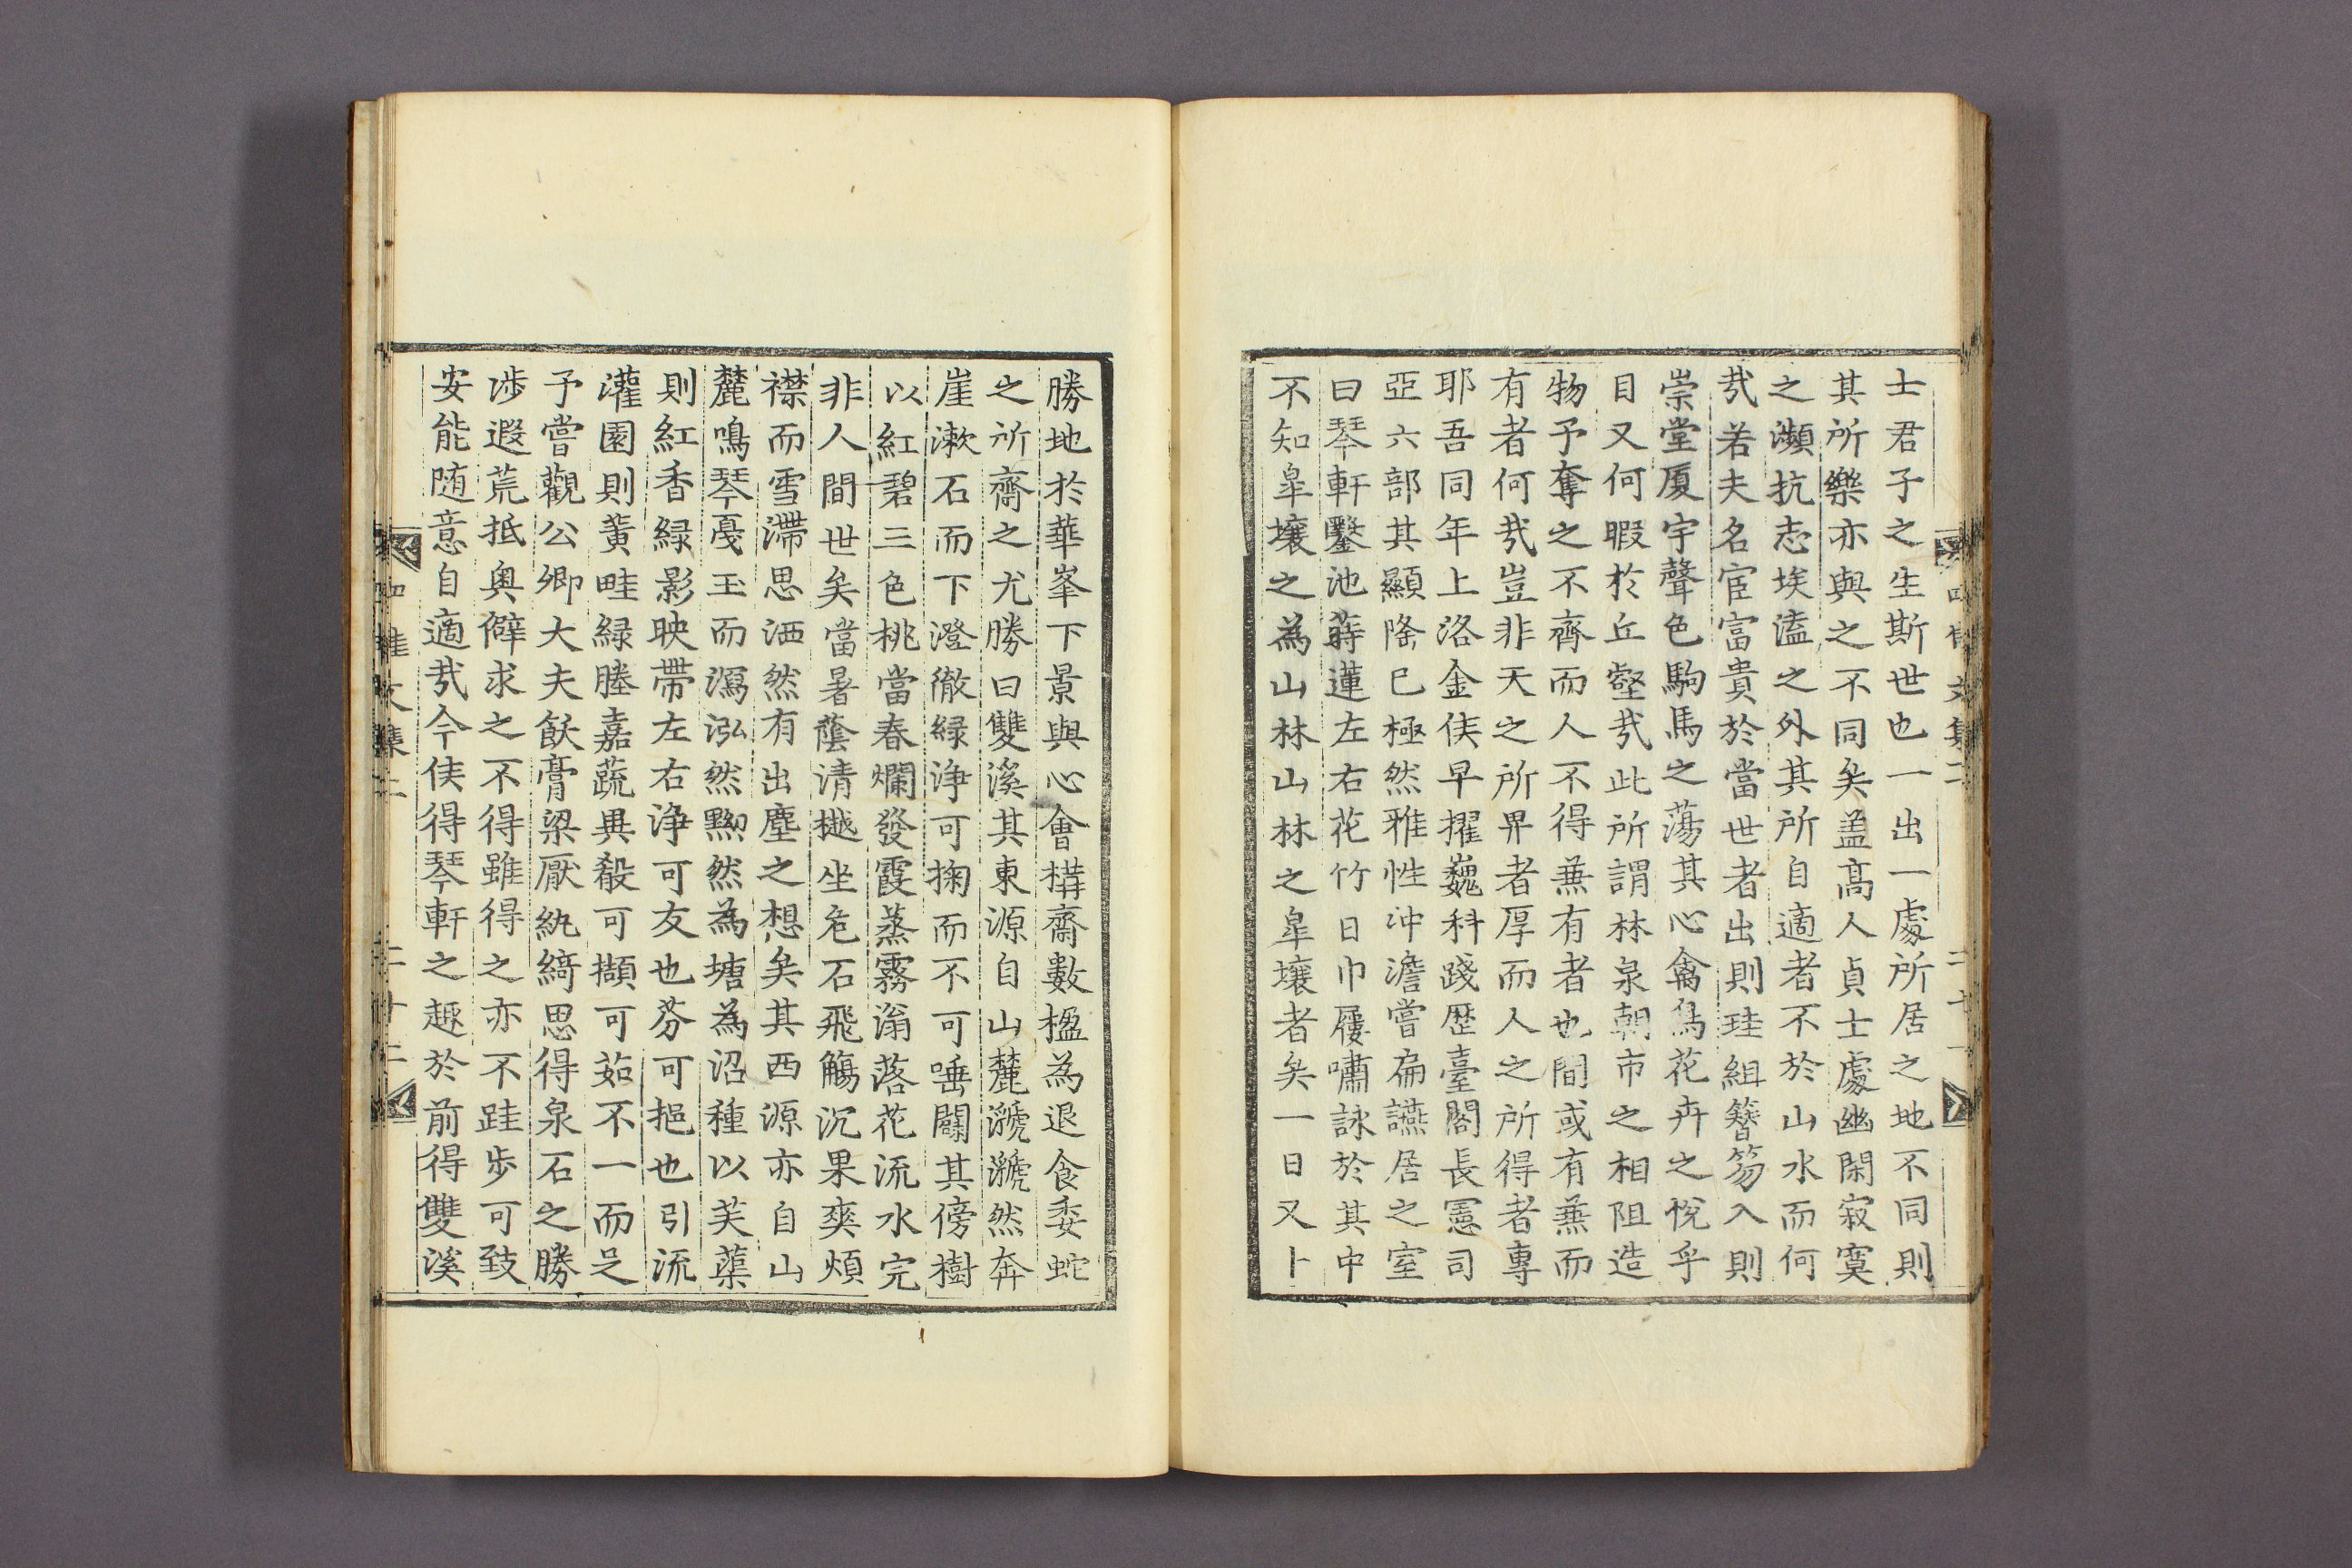 士君子之生斯世也一出一處所居之地不同則
其所樂亦與之不同矣盖髙人貞士處幽閑寂寞
之濒抗志埃𡏖之外其所自適者不於山水而何
㢤若夫名宦富貴於當世者出則珪組簪笏入則
崇堂厦宇聲色駒馬之蕩其心禽鳥花卉之悅乎
目又何暇於丘壑㢤此所謂林泉朝市之相阻造
物予奪之不齊而人不得兼有者也間或有兼而
有者何㢤豈非天之所畀者厚而人之所得者專
耶吾同年上洛金侯早擢巍科踐歷臺閣長憲司
亞六部其顯隆已極然雅性冲澹嘗扁讌居之室
曰琴軒鑿池蒔蓮左右花竹日巾屨嘯詠於其中
不知皐壤之為山林山林之皐壤者矣一日又卜
勝地於華峯下景與心會構齋數楹為退食委蛇
之所齋之尤勝曰雙溪其東源自山麓㶁㶁然奔
崖漱石而下澄徹緑浄可掬而不可唾闢其傍樹
以紅碧三色桃當春爛發霞蒸霧滃落花流水完
非人間世矣當暑蔭清樾坐危石飛觴沉果爽煩
襟而雪滯思洒然有出塵之想矣其西源亦自山
麓鳴琴戛玉而瀉泓然黝然為塘為沼種以芙蕖
則紅香緑影映帶左右浄可友也芬可挹也引流
灌園則黃畦緑塍嘉蔬異殽可擷可茹不一而足
予嘗觀公卿大夫飫膏粱厭紈綺思得泉石之勝
渉遐荒抵奥僻求之不得雖得之亦不跬步可致
安能随意自適㢤今侯得琴軒之趣於前得雙溪
文集二
二十二